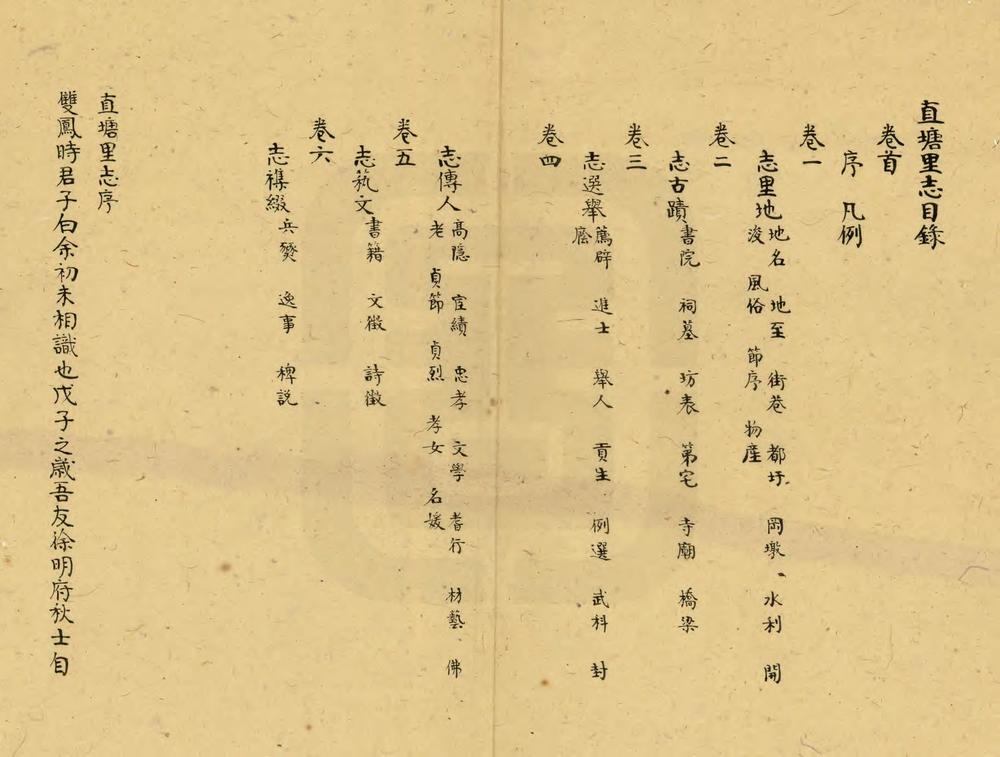 直塘里志目錄
卷首
序 凡例
卷一
志里地地名 地至 街巷 都圩 岡墩 水利 開
浚 風俗 節序 物產
卷二
志古蹟書院 祠墓 坊表 第宅 寺廟 橋梁
卷三
志選舉薦辟 進士 舉人 貢生 例選 武科 封
廕
卷四
志傳人高隱 宦績 忠孝 文學 耆行 材藝 佛
老 貞節 貞烈 孝女 名媛
卷五
志藝文書籍 文徵 詩徵
卷六
志襍綴兵燹 逸事 稗說
直塘里志序
雙鳳時君子白余初未相識也戊子之歲吾友徐明府秋士自